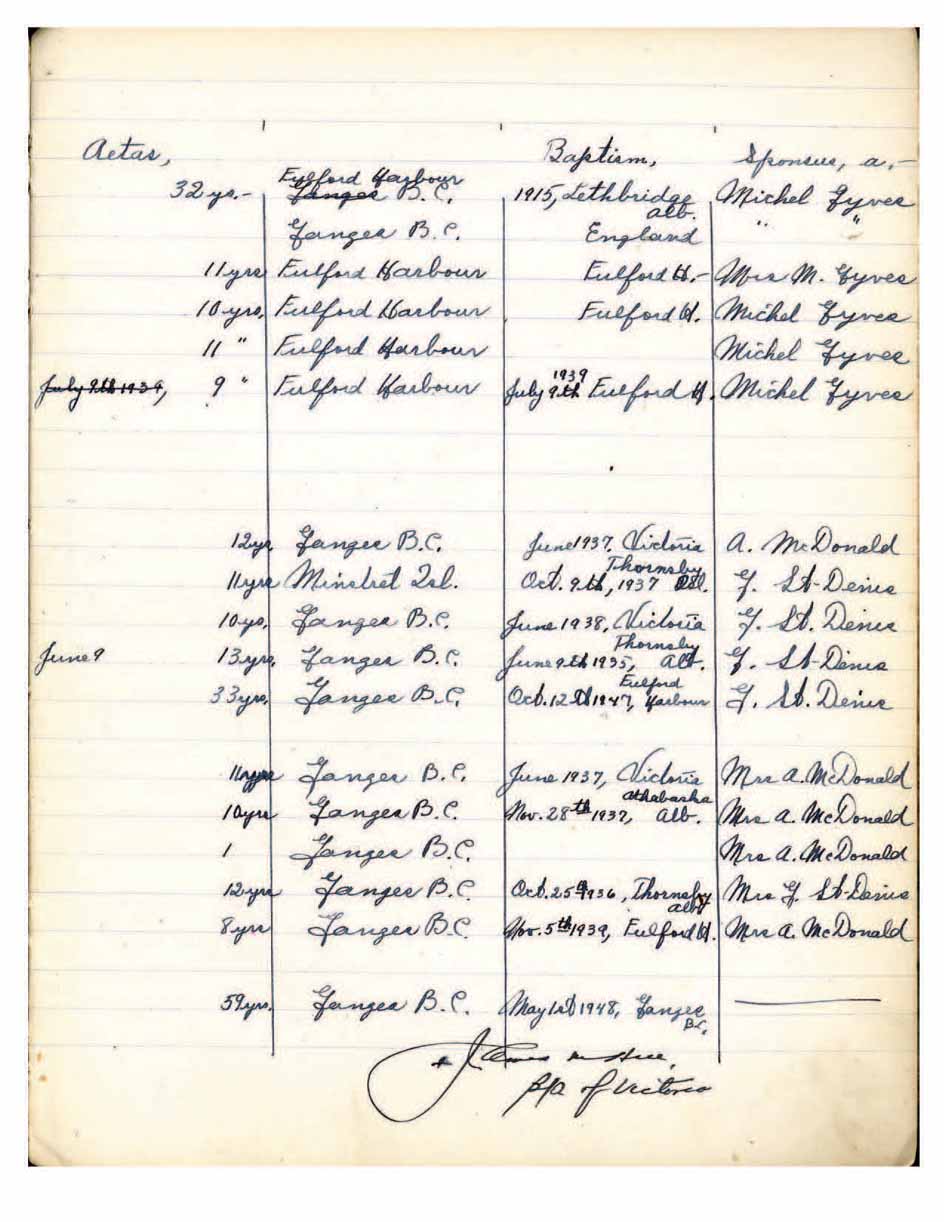 Aetas, Baptism, Sponsus, a,-
Fulford Harbour
32 yrs.- Ganges B.C. 1915, Lethbridge Michel Gyves
Alb.
Ganges B.C. England " "
11 yrs Fulford Harbour Fulford H.- Mrs M. Gyves
10 yrs, Fulford Harbour Fulford H. Michel Gyves
11 " Fulford Harbour Michel Gyves
1939
July 9th 1939, 9 " Fulford Harbour July 9th Fulford H. Michel Gyves
12yr Ganges B.C. June 1937, Victoria A. McDonald
Thornsby
11yrs Minstret Isl. Oct. 9th, 1937 G. St-Denis
10 yo. Ganges B.C. June 1938, Victoria G. St. Denis
Thornsby
June 9 13yrs. Ganges B.C. June 9th 1935, Alb. G. St-Denis
Fulford
33yrs, Ganges B.C. Oct. 12th 1947, Harbour G. St. Denis
11 yrs Ganges B.C. June 1937, Victoria Mrs A. McDonald
Athabaska
10yrs Ganges B.C. Nov. 28th 1937, Alb. Mrs A. McDonald
1 Ganges B.C. Mrs A. McDonald
12 yrs Ganges B.C. Oct. 25 1936, Thornsby Mrs G. St-Denis
Alb
8 yrs Ganges B.C. Nov. 5th 1939, Fulford H. Mrs A. McDonald
59yrs. Ganges B.C. May 1st 1948, Ganges
B.C.
+ James M Hill
of Victoria